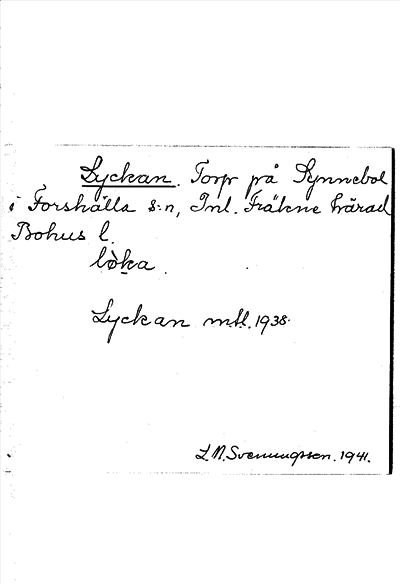 Lyckan. Torp på Synnebol
i Forshälla s:n, Inl. Fräkne härad
Bohus l.
lòka.
Lyckan mtl. 1938.
L.N. Svenungsson. 1941.